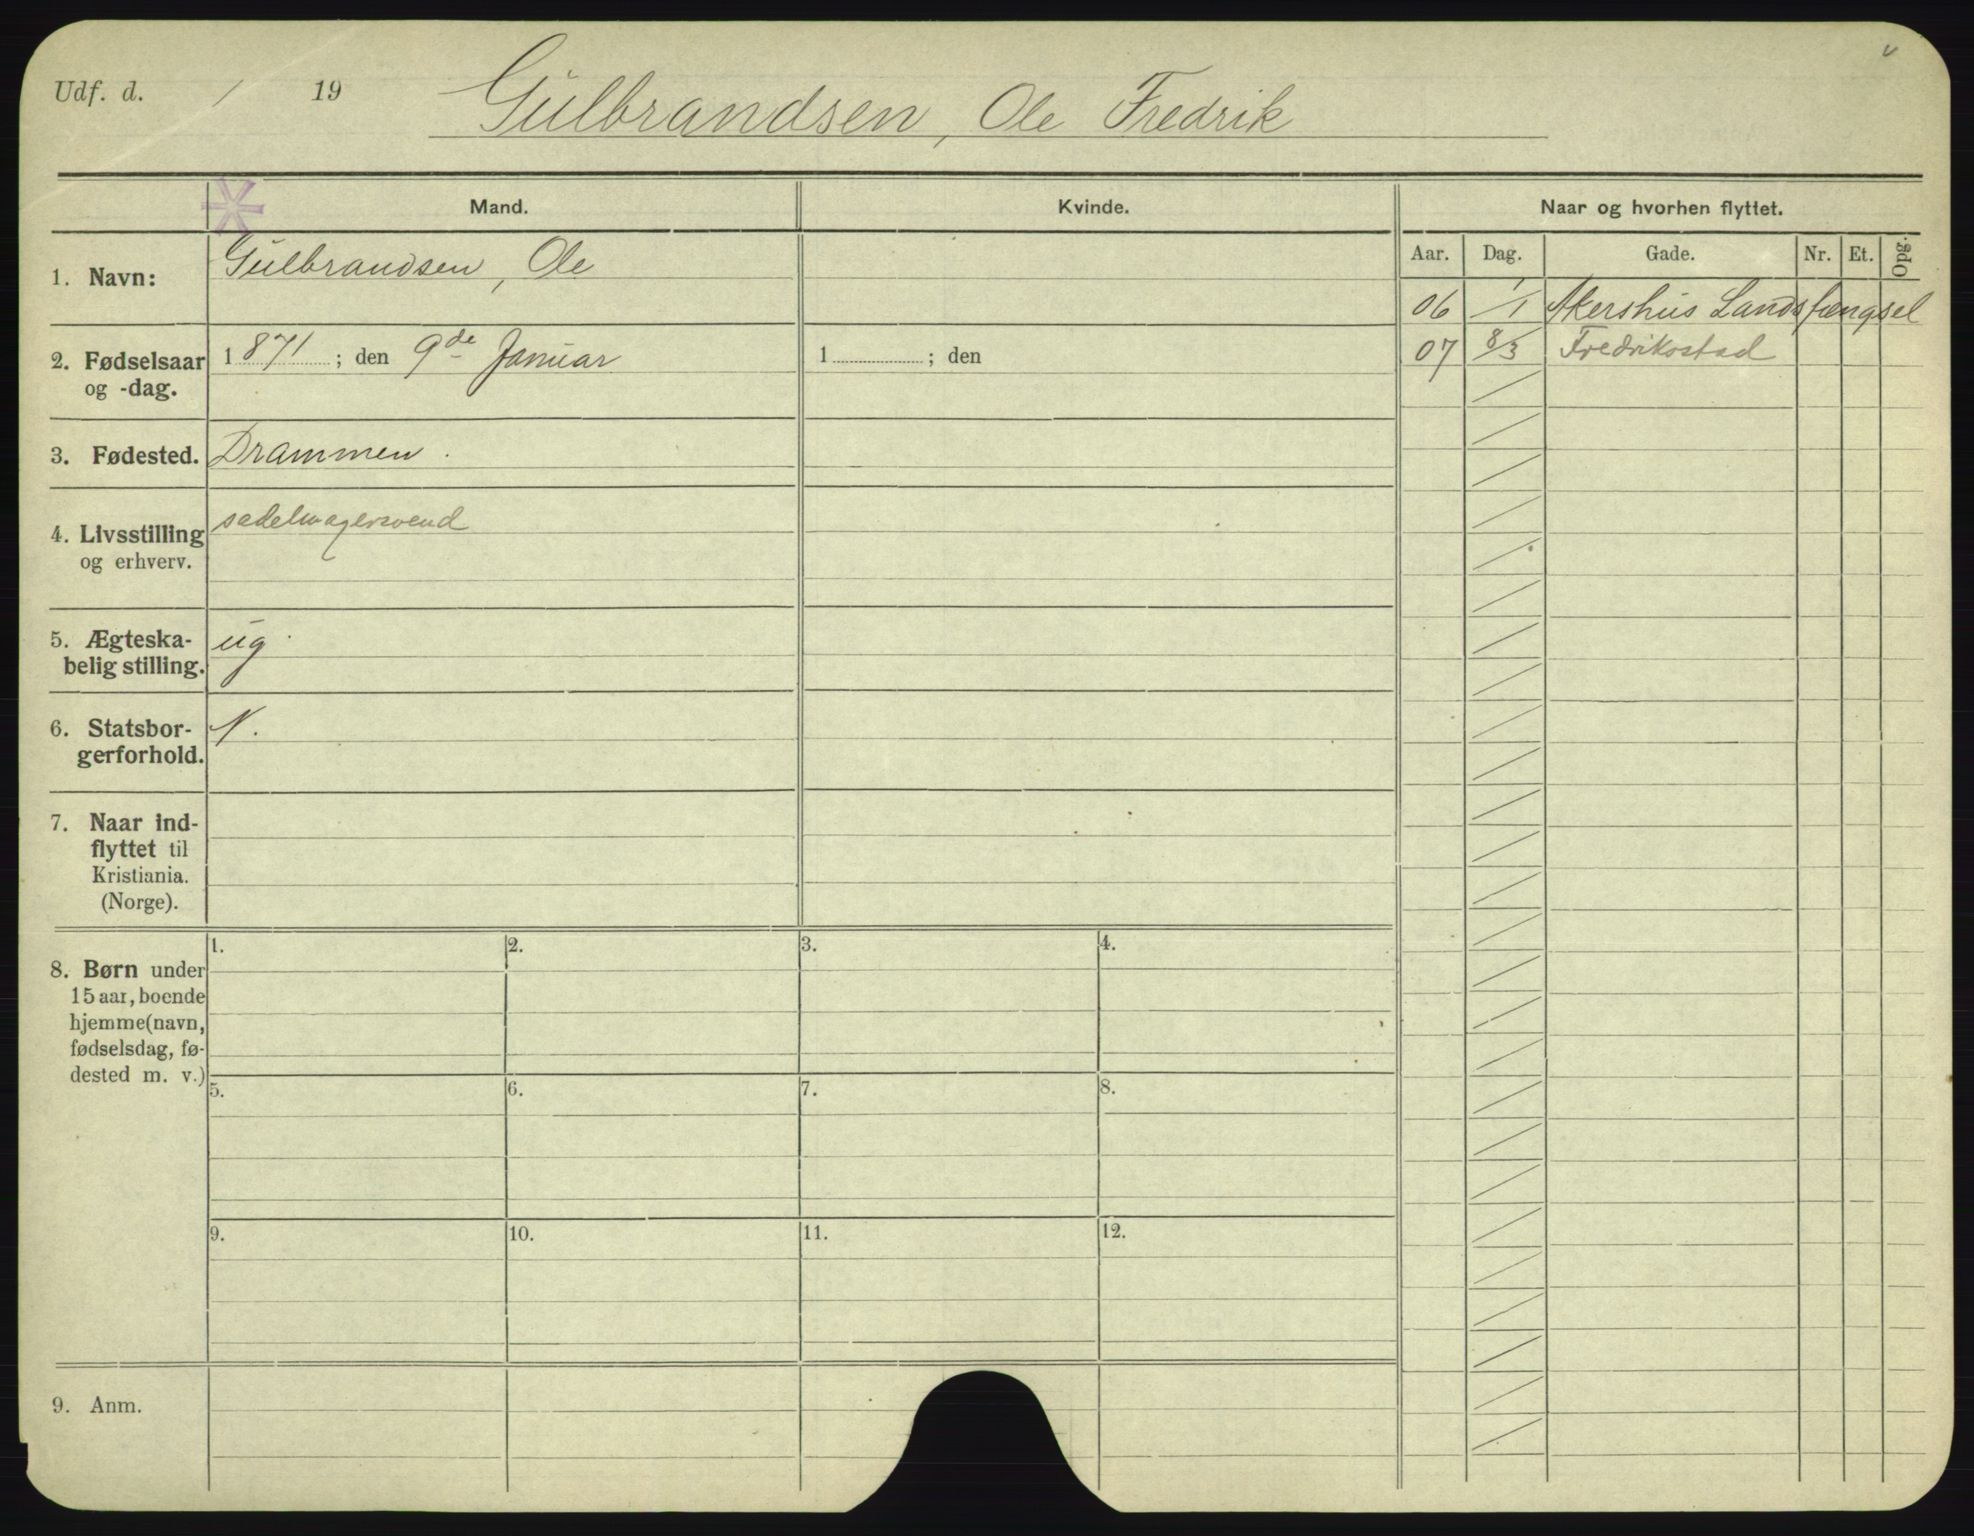 Udf. d. / 19
Gulbrandsen, Ole Fredrik
Mand.
Kvinde.
Naar og hvorhen flyttet.
Aar. Dag. Gade. Nr. Et. Opg.
1. Navn: Gulbrandsen, Ole
06 1/1 Akershus Landsfængsel
07 8/3 Fredrikstad
2. Fødselsaar 1871 ; den 9de Januar 1 ; den
og -dag.
3. Fødested. Drammen.
4. Livsstilling sadelmagersvend
og erhverv.
5. Ægteska- ug.
belig stilling.
6. Statsbor- N.
gerforhold.
7. Naar ind-
flyttet til
Kristiania.
(Norge).
1. 2. 3. 4.
8. Børn under
15 aar, boende
hjemme(navn,
fødselsdag, fø-
dested m. v.)
5. 6. 7. 8.
9. 10. 11. 12.
9. Anm.